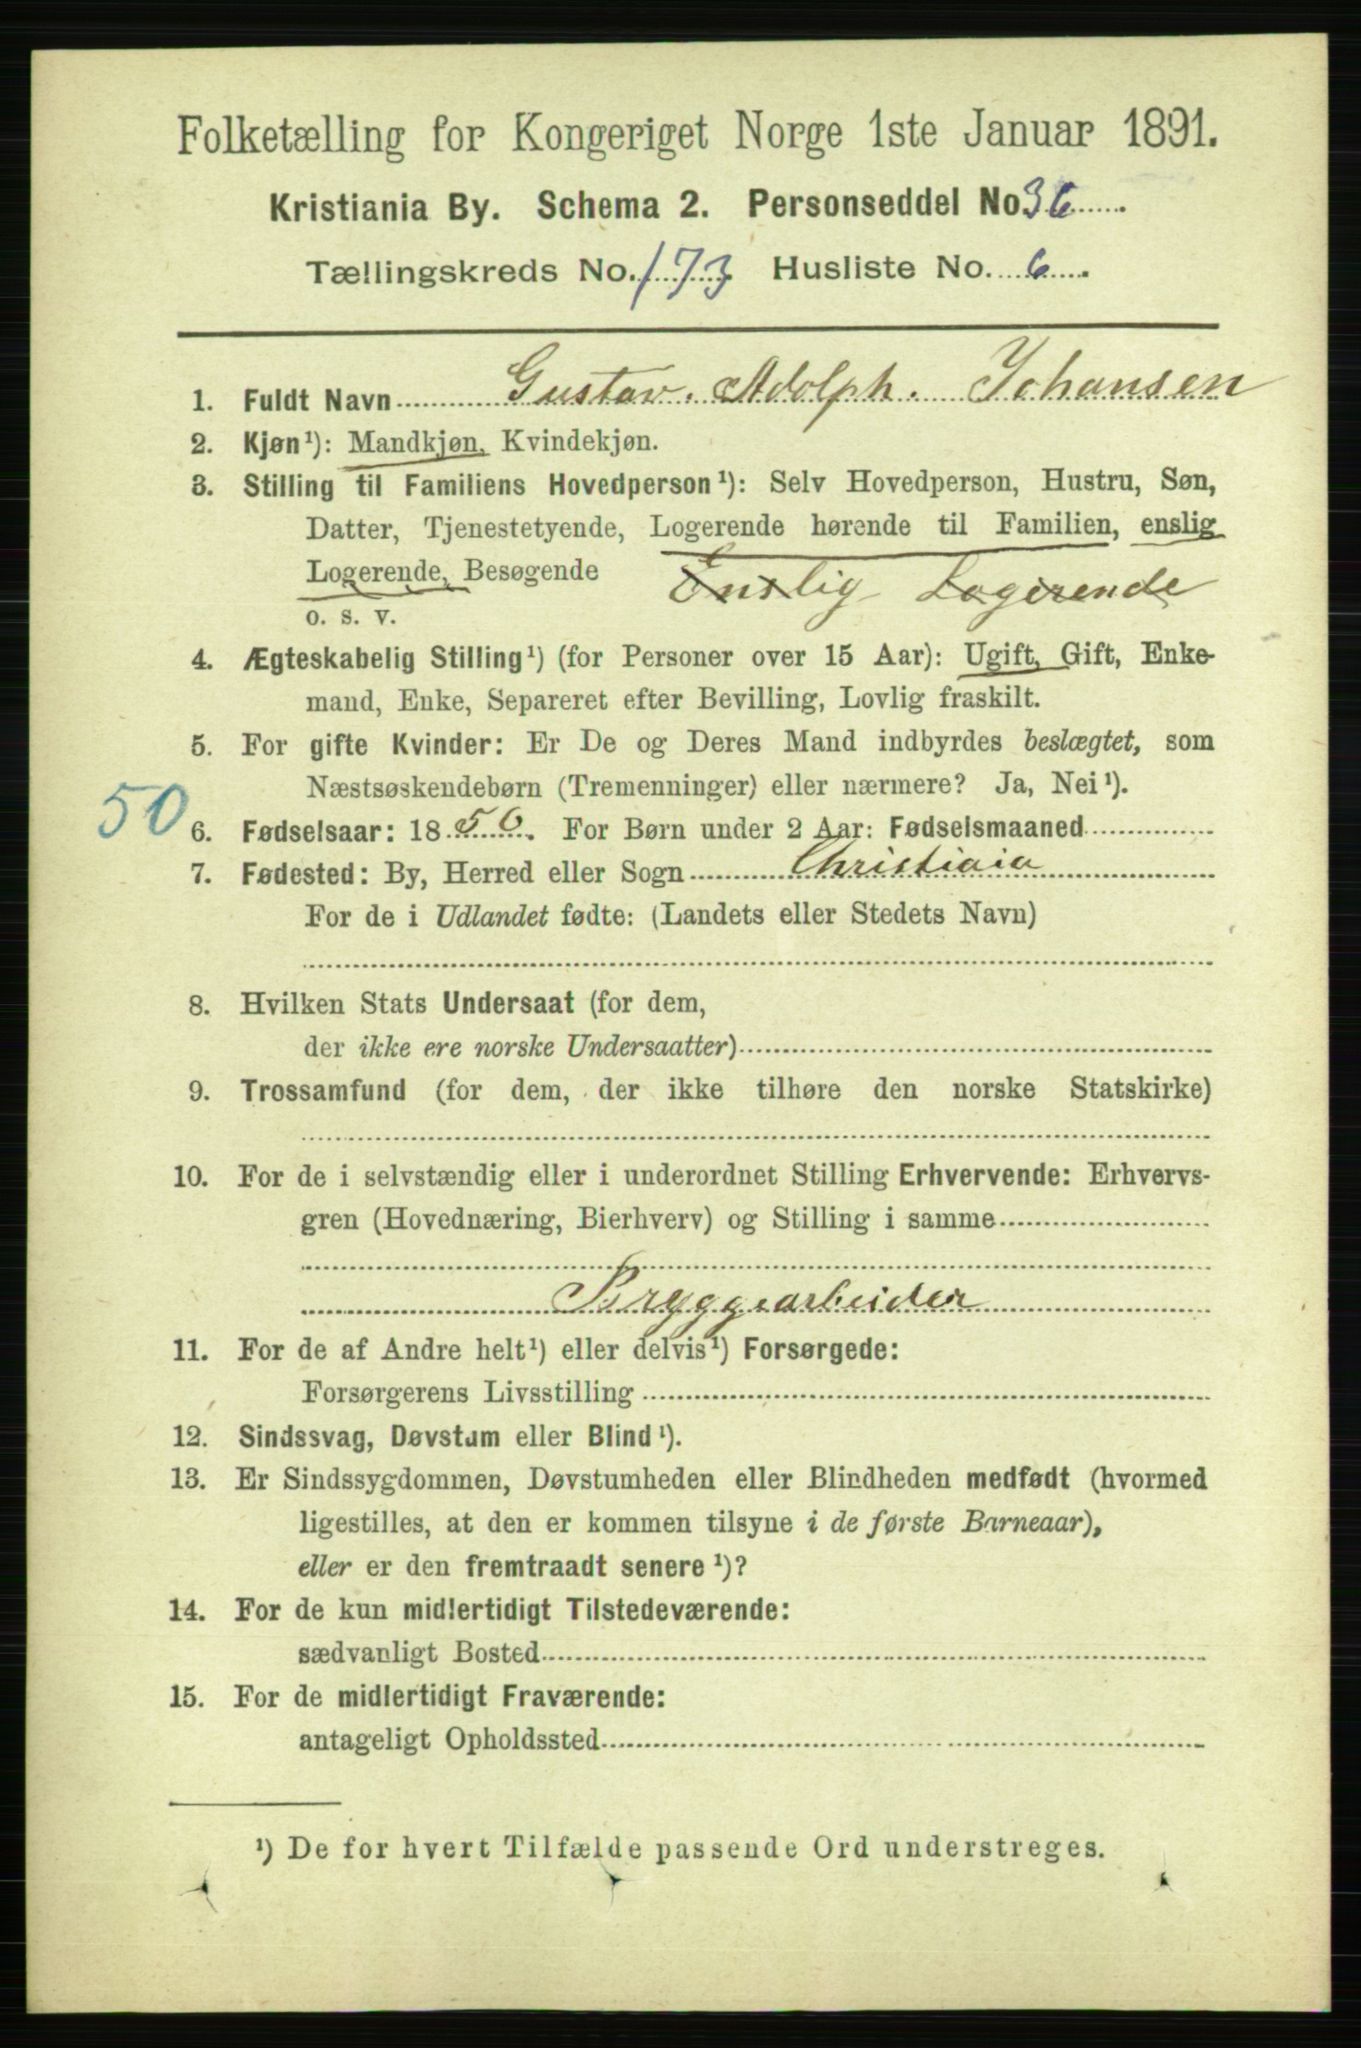 Folketælling for Kongeriget Norge 1ste Januar 1891.
Kristiania By. Schema 2. Personseddel No 36
Tællingskreds No. 173 Husliste No. 6
1. Fuldt Navn Gustav. Adolph. Johansen
2. Kjøn¹): Mandkjøn, Kvindekjøn.
3. Stilling til Familiens Hovedperson¹): Selv Hovedperson, Hustru, Søn,
Datter, Tjenestetyende, Logerende hørende til Familien, enslig
Logerende, Besøgende Enslig Logerende
o. s. v.
4. Ægteskabelig Stilling¹) (for Personer over 15 Aar): Ugift, Gift, Enke-
mand, Enke, Separeret efter Bevilling, Lovlig fraskilt.
5. For gifte Kvinder: Er De og Deres Mand indbyrdes beslægtet, som
Næstsøskendebørn (Tremenninger) eller nærmere? Ja, Nei¹).
50
6. Fødselsaar: 1850. For Børn under 2 Aar: Fødselsmaaned
7. Fødested: By, Herred eller Sogn Christiaia
For de i Udlandet fødte: (Landets eller Stedets Navn)
8. Hvilken Stats Undersaat (for dem,
der ikke ere norske Undersaatter)
9. Trossamfund (for dem, der ikke tilhøre den norske Statskirke)
10. For de i selvstændig eller i underordnet Stilling Erhvervende: Erhvervs-
gren (Hovednæring, Bierhverv) og Stilling i samme
Bryggearbeider
11. For de af Andre helt¹) eller delvis¹) Forsørgede:
Forsørgerens Livsstilling
12. Sindssvag, Døvstum eller Blind¹).
13. Er Sindssygdommen, Døvstumheden eller Blindheden medfødt (hvormed
ligestilles, at den er kommen tilsyne i de første Barneaar),
eller er den fremtraadt senere¹)?
14. For de kun midlertidigt Tilstedeværende:
sædvanligt Bosted
15. For de midlertidigt Fraværende:
antageligt Opholdssted
¹) De for hvert Tilfælde passende Ord understreges.